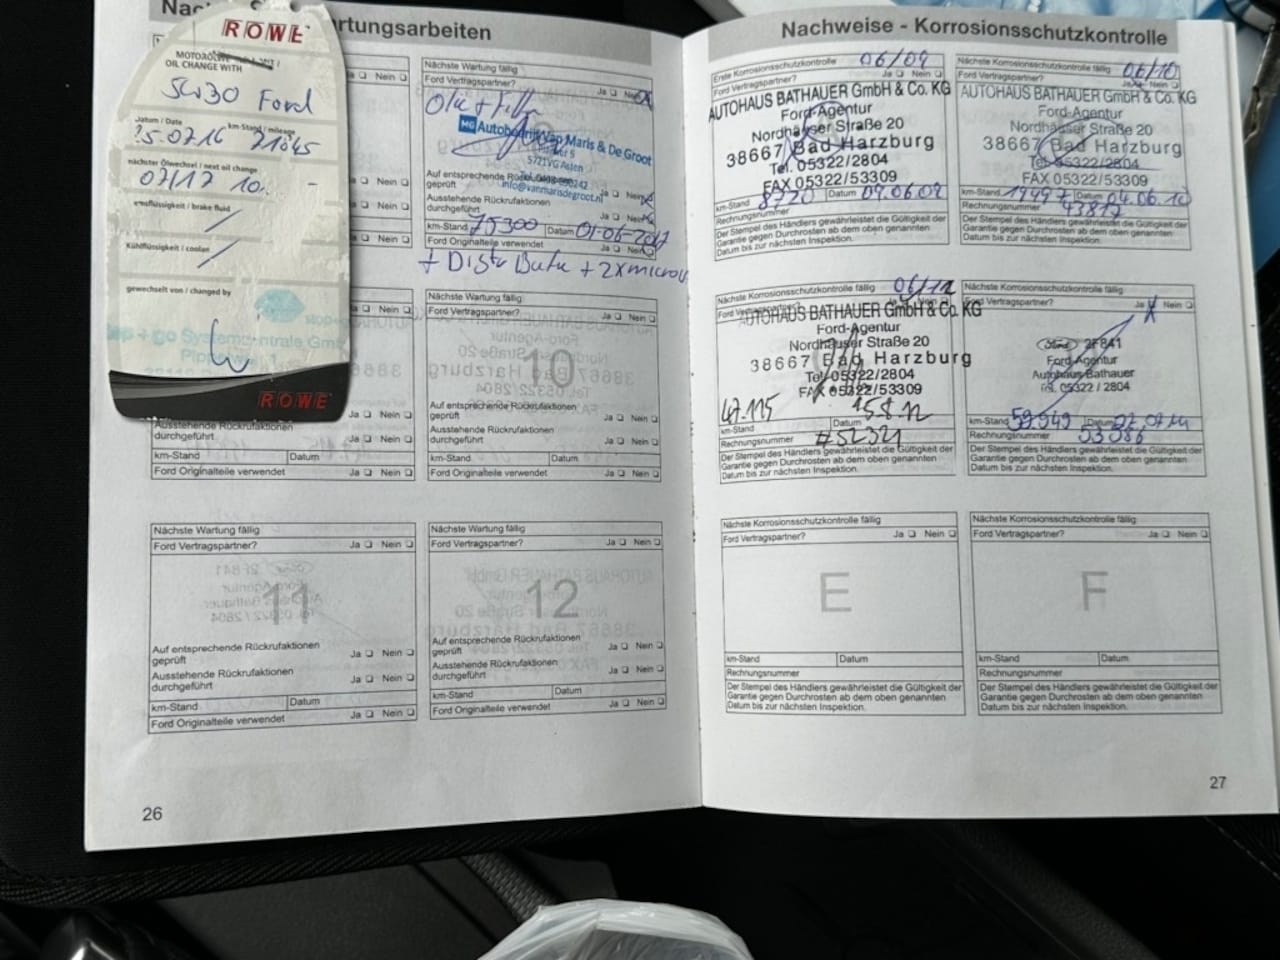 ROWE
OIL CHANGE WITH
5W30 Ford
Datum / Date
km-Stand / mileage
5.07.16 71845
nächster Ölwechsel / next oil change
07/17 10.
/ brake fluid
Kühlflüssigkeit / coolant
gewechselt von / changed by
ROWE
rtungsarbeiten
Nein
Ja Nein
Ja Nein
Ja Nein
Ja Nein
Ausstehende Rückrufaktionen
durchgeführt
Ja Nein
km-Stand Datum
Ford Originalteile verwendet Ja Nein
Nächste Wartung fällig
Ford Vertragspartner? Ja Nein
Olie + filter
MG Autobedrijf Van Maris & De Groot
5721VG Asten
info@vanmarisdegroot.nl
Auf entsprechende
geprüft Ja
Ausstehende Rückrufaktionen
durchgeführt Ja
km-Stand 75300 Datum 01-06-2017
Ford Originalteile verwendet Ja Nein
+ Distr + 2x
Nächste Wartung fällig
Ford Vertragspartner? Ja Nein
10
Auf entsprechende Rückrufaktionen
geprüft Ja Nein
Ausstehende Rückrufaktionen
durchgeführt Ja Nein
km-Stand Datum
Ford Originalteile verwendet Ja Nein
Nächste Wartung fällig
Ford Vertragspartner? Ja Nein
11
Auf entsprechende Rückrufaktionen
geprüft Ja Nein
Ausstehende Rückrufaktionen
durchgeführt Ja Nein
km-Stand Datum
Ford Originalteile verwendet Ja Nein
Nächste Wartung fällig
Ford Vertragspartner? Ja Nein
12
Auf entsprechende Rückrufaktionen
geprüft Ja Nein
Ausstehende Rückrufaktionen
durchgeführt Ja Nein
km-Stand Datum
Ford Originalteile verwendet Ja Nein
26
Nachweise - Korrosionsschutzkontrolle
Erste Korrosionsschutzkontrolle 06/09
Ford Vertragspartner? Ja Nein
AUTOHAUS BATHAUER GmbH & Co. KG
Ford-Agentur
Nordhäuser Straße 20
38667 Bad Harzburg
Tel. 05322/2804
FAX 05322/53309
km-Stand 8720 Datum 09.06.09
Rechnungsnummer
Der Stempel des Händlers gewährleistet die Gültigkeit der
Garantie gegen Durchrosten ab dem oben genannten
Datum bis zur nächsten Inspektion.
Nächste Korrosionsschutzkontrolle fällig 06/10
Ford Vertragspartner? Ja Nein
AUTOHAUS BATHAUER GmbH & Co. KG
Ford-Agentur
Nordhäuser Straße 20
38667 Bad Harzburg
Tel. 05322/2804
FAX 05322/53309
km-Stand 19497 Datum 04.06.10
Rechnungsnummer 43817
Der Stempel des Händlers gewährleistet die Gültigkeit der
Garantie gegen Durchrosten ab dem oben genannten
Datum bis zur nächsten Inspektion.
Nächste Korrosionsschutzkontrolle fällig 06/12
Ford Vertragspartner?
AUTOHAUS BATHAUER GmbH & Co. KG
Ford-Agentur
Nordhäuser Straße 20
38667 Bad Harzburg
Tel. 05322/2804
FAX 05322/53309
47.115 15.8.12
km-Stand Datum
Rechnungsnummer #52321
Der Stempel des Händlers gewährleistet die Gültigkeit der
Garantie gegen Durchrosten ab dem oben genannten
Datum bis zur nächsten Inspektion.
Nächste Korrosionsschutzkontrolle fällig
Ford Vertragspartner? Ja X Nein
Ford 2F841
Ford-Agentur
Autohaus Bathauer
Tel. 05322 / 2804
km-Stand 59549 Datum 22.07.14
Rechnungsnummer 53086
Der Stempel des Händlers gewährleistet die Gültigkeit der
Garantie gegen Durchrosten ab dem oben genannten
Datum bis zur nächsten Inspektion.
Nächste Korrosionsschutzkontrolle fällig
Ford Vertragspartner? Ja Nein
E
km-Stand Datum
Rechnungsnummer
Der Stempel des Händlers gewährleistet die Gültigkeit der
Garantie gegen Durchrosten ab dem oben genannten
Datum bis zur nächsten Inspektion.
Nächste Korrosionsschutzkontrolle fällig
Ford Vertragspartner? Ja Nein
F
km-Stand Datum
Rechnungsnummer
Der Stempel des Händlers gewährleistet die Gültigkeit der
Garantie gegen Durchrosten ab dem oben genannten
Datum bis zur nächsten Inspektion.
27